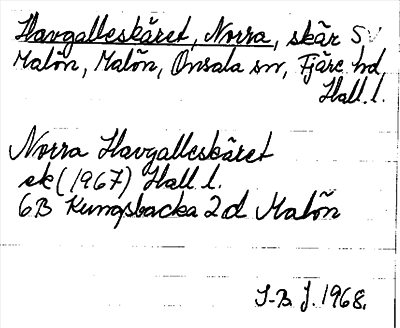 Havgalleskäret, Norra, skär SV
Malön, Malön, Onsala sn, Fjäre hd,
Hall. l.
Norra Havgalleskäret
ek (1967) Hall l.
6B Kungsbacka 2d Malön
S-B J. 1968.